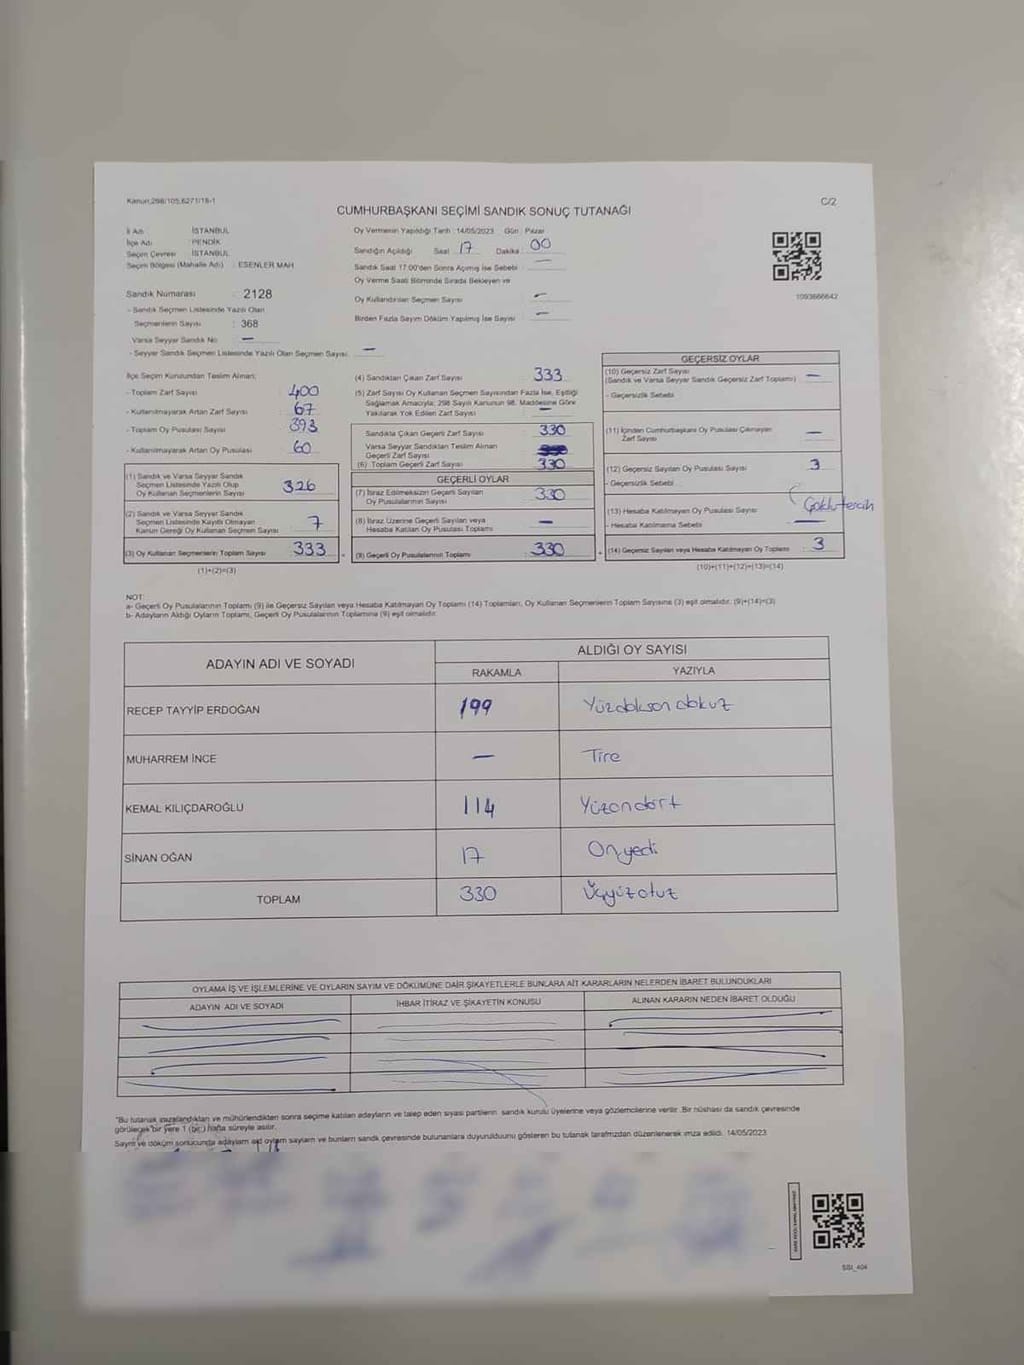 Kanun;298/105,6271/18-1
C/2
CUMHURBAŞKANI SEÇİMİ SANDIK SONUÇ TUTANAĞI
İl Adı İSTANBUL
İlçe Adı PENDİK
Seçim Çevresi İSTANBUL
Seçim Bölgesi (Mahalle Adı) : ESENLER MAH
Sandık Numarası : 2128
- Sandık Seçmen Listesinde Yazılı Olan
Seçmenlerin Sayısı : 368
Varsa Seyyar Sandık No : —
- Seyyar Sandık Seçmen Listesinde Yazılı Olan Seçmen Sayısı: —
Oy Vermenin Yapıldığı Tarih : 14/05/2023 Gün : Pazar
Sandığın Açıldığı Saat 17 Dakika : 00
Sandık Saat 17:00'den Sonra Açılmış İse Sebebi : —
Oy Verme Saati Bitiminde Sırada Bekleyen ve
Oy Kullandırılan Seçmen Sayısı : —
Birden Fazla Sayım Döküm Yapılmış İse Sayısı : —
1093666642
İlçe Seçim Kurulundan Teslim Alınan;
- Toplam Zarf Sayısı : 400
- Kullanılmayarak Artan Zarf Sayısı : 67
- Toplam Oy Pusulası Sayısı : 393
- Kullanılmayarak Artan Oy Pusulası : 60
(1) Sandık ve Varsa Seyyar Sandık
Seçmen Listesinde Yazılı Olup
Oy Kullanan Seçmenlerin Sayısı 326
(2) Sandık ve Varsa Seyyar Sandık
Seçmen Listesinde Kayıtlı Olmayan
Kanun Gereği Oy Kullanan Seçmen Sayısı 7
(3) Oy Kullanan Seçmenlerin Toplam Sayısı 333
(1)+(2)=(3)
(4) Sandıktan Çıkan Zarf Sayısı : 333
(5) Zarf Sayısı Oy Kullanan Seçmen Sayısından Fazla İse, Eşitliği
Sağlamak Amacıyla; 298 Sayılı Kanunun 98. Maddesine Göre
Yakılarak Yok Edilen Zarf Sayısı : —
Sandıkta Çıkan Geçerli Zarf Sayısı 330
Varsa Seyyar Sandıktan Teslim Alınan
Geçerli Zarf Sayısı
(6) Toplam Geçerli Zarf Sayısı 330
GEÇERLİ OYLAR
(7) İtiraz Edilmeksizin Geçerli Sayılan
Oy Pusulalarının Sayısı 330
(8) İtiraz Üzerine Geçerli Sayılan veya
Hesaba Katılan Oy Pusulası Toplamı —
(9) Geçerli Oy Pusulalarının Toplamı 330
GEÇERSİZ OYLAR
(10) Geçersiz Zarf Sayısı
(Sandık ve Varsa Seyyar Sandık Geçersiz Zarf Toplamı) —
- Geçersizlik Sebebi
(11) İçinden Cumhurbaşkanı Oy Pusulası Çıkmayan
Zarf Sayısı —
(12) Geçersiz Sayılan Oy Pusulası Sayısı 3
- Geçersizlik Sebebi
(13) Hesaba Katılmayan Oy Pusulası Sayısı Çoklu tercih
- Hesaba Katılmama Sebebi —
(14) Geçersiz Sayılan veya Hesaba Katılmayan Oy Toplamı 3
(10)+(11)+(12)+(13)=(14)
NOT:
a- Geçerli Oy Pusulalarının Toplamı (9) ile Geçersiz Sayılan veya Hesaba Katılmayan Oy Toplamı (14) Toplamları, Oy Kullanan Seçmenlerin Toplam Sayısına (3) eşit olmalıdır. (9)+(14)=(3)
b- Adayların Aldığı Oyların Toplamı, Geçerli Oy Pusulalarının Toplamına (9) eşit olmalıdır.
ADAYIN ADI VE SOYADI ALDIĞI OY SAYISI
RAKAMLA YAZIYLA
RECEP TAYYİP ERDOĞAN 199 Yüzdoksan dokuz
MUHARREM İNCE — Tire
KEMAL KILIÇDAROĞLU 114 Yüzondört
SİNAN OĞAN 17 Onyedi
TOPLAM 330 Üçyüzotuz
OYLAMA İŞ VE İŞLEMLERİNE VE OYLARIN SAYIM VE DÖKÜMÜNE DAİR ŞİKAYETLERLE BUNLARA AİT KARARLARIN NELERDEN İBARET BULUNDUKLARI
ADAYIN ADI VE SOYADI İHBAR İTİRAZ VE ŞİKAYETİN KONUSU ALINAN KARARIN NEDEN İBARET OLDUĞU
"Bu tutanak imzalandıktan ve mühürlendikten sonra seçime katılan adayların ve talep eden siyasi partilerin sandık kurulu üyelerine veya gözlemcilerine verilir. Bir nüshası da sandık çevresinde
görülecek bir yere 1 (bir) hafta süreyle asılır.
Sayım ve döküm sonucunda adayların oyların sayılarını ve bunların sandık çevresinde bulunanlara duyurulduunu gösteren bu tutanak tarafımızdan düzenlenerek imza edildi. 14/05/2023
SSI_404